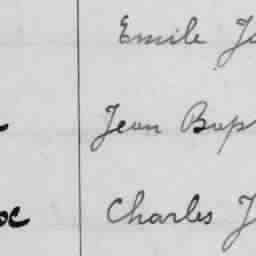 Emile J
Jean Bap
Charles J